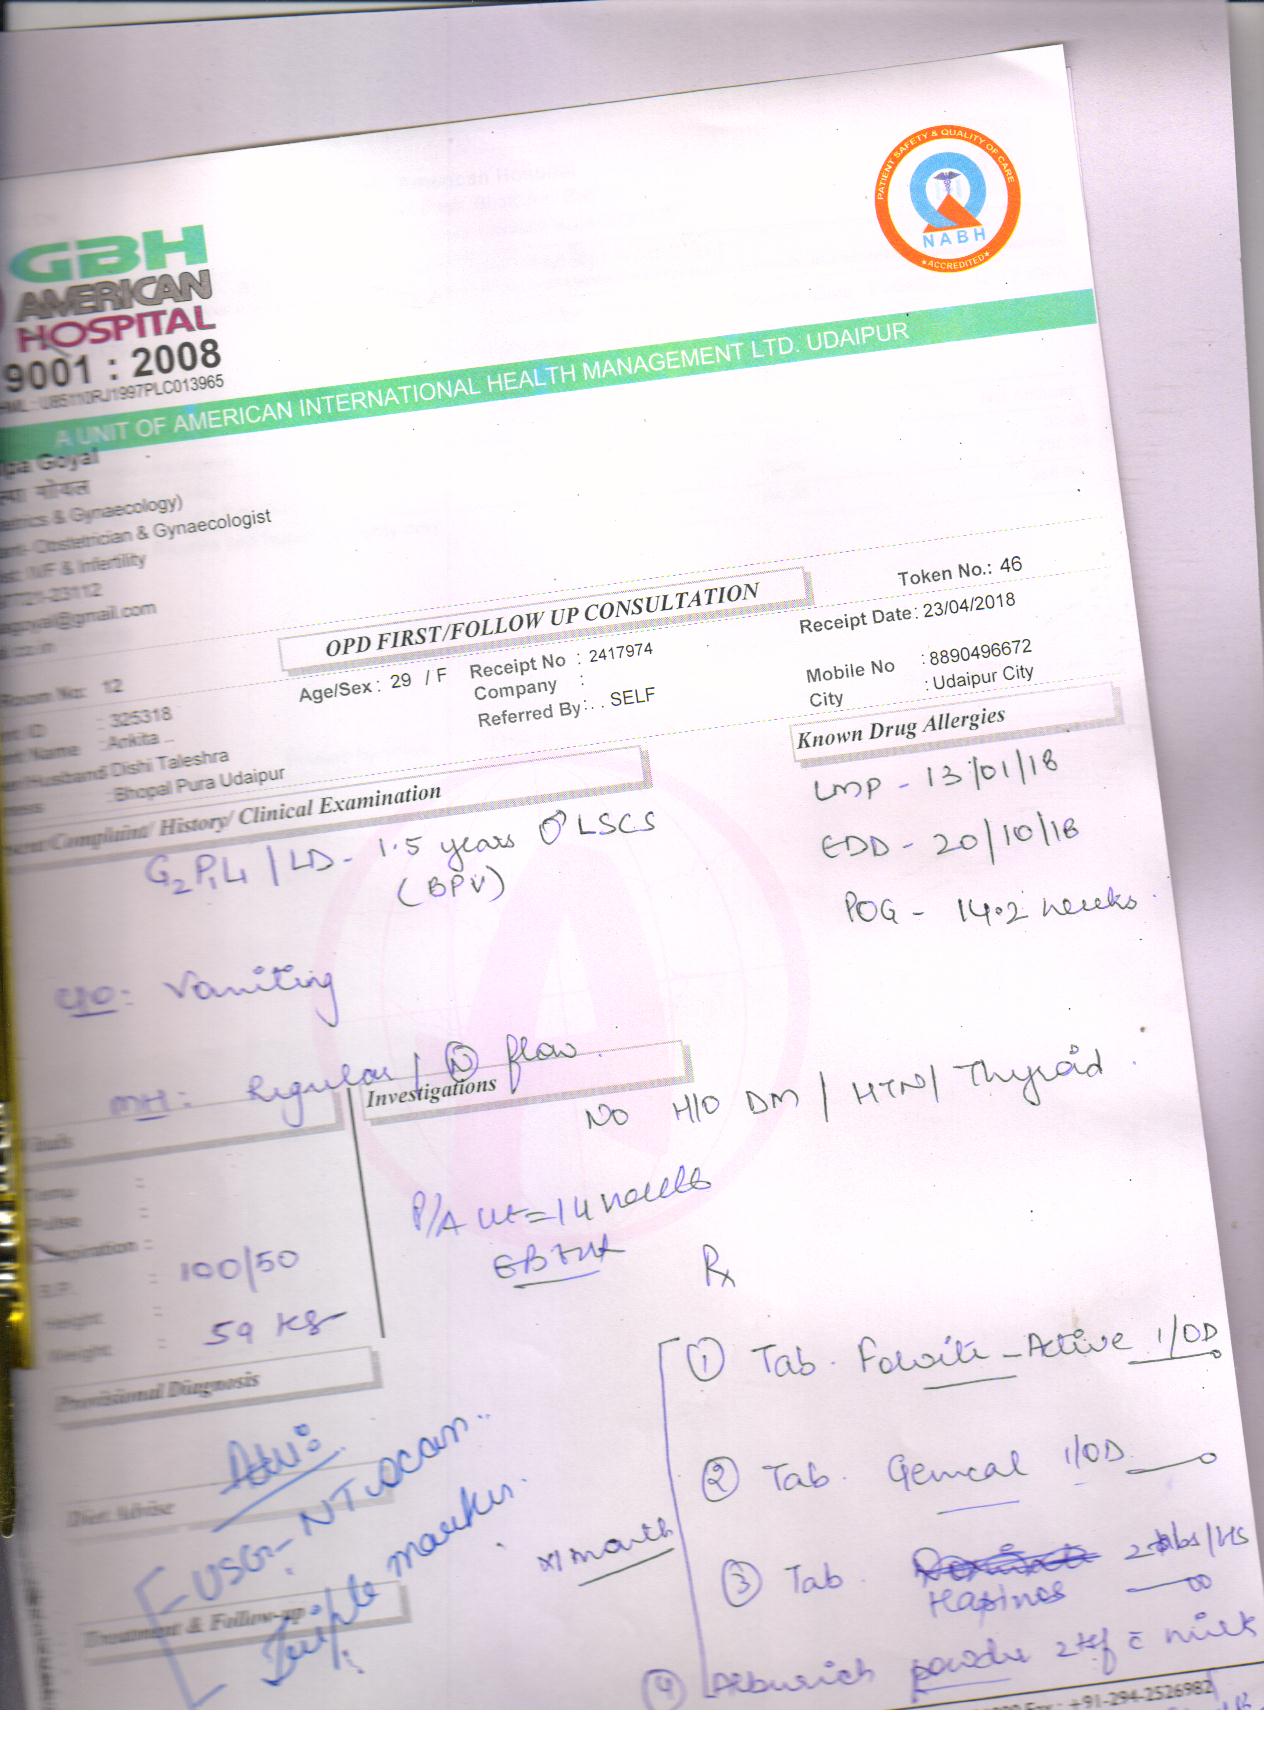 PATIENT SAFETY & QUALITY OF CARE
NABH
★ACCREDITED★
GBH
AMERICAN
HOSPITAL
9001 : 2008
U85110RJ1997PLC013965
A UNIT OF AMERICAN INTERNATIONAL HEALTH MANAGEMENT LTD. UDAIPUR
Goyal
गोयल
& Gynaecology)
Obstetrician & Gynaecologist
IVF & Infertility
-23112
@gmail.com
Token No.: 46
OPD FIRST/FOLLOW UP CONSULTATION
Receipt Date: 23/04/2018
Room No: 12
Age/Sex : 29 / F
Receipt No : 2417974
Mobile No : 8890496672
ID : 325318
Company :
City : Udaipur City
Name : Ankita ..
Referred By : . . SELF
Husband Dishi Taleshra
: Bhopal Pura Udaipur
Known Drug Allergies
Complaint/ History/ Clinical Examination
LMP - 13/01/18
G2P1L1 / LD - 1.5 years ♂ LSCS
(BPV)
EDD - 20/10/18
POG - 14.2 weeks
C/O: Vomiting
MH: Regular / Ⓝ flow.
Investigations
No H/O DM / HTN / Thyroid.
Temp :
Pulse :
Respiration :
B.P. : 100/50
Height :
Weight : 59 kg
P/A ut = 14 weeks
Rx
Provisional Diagnosis
① Tab. Folvite - Active 1/OD
Adv:
USG - NT scan
Triple marker
Diet Advise
② Tab. Gemcal 1/OD
x 1 month
③ Tab. 2 tabs/HS
Treatment & Follow-up
④ powder 2tsf c̄ milk
Fax : +91-294-2526982